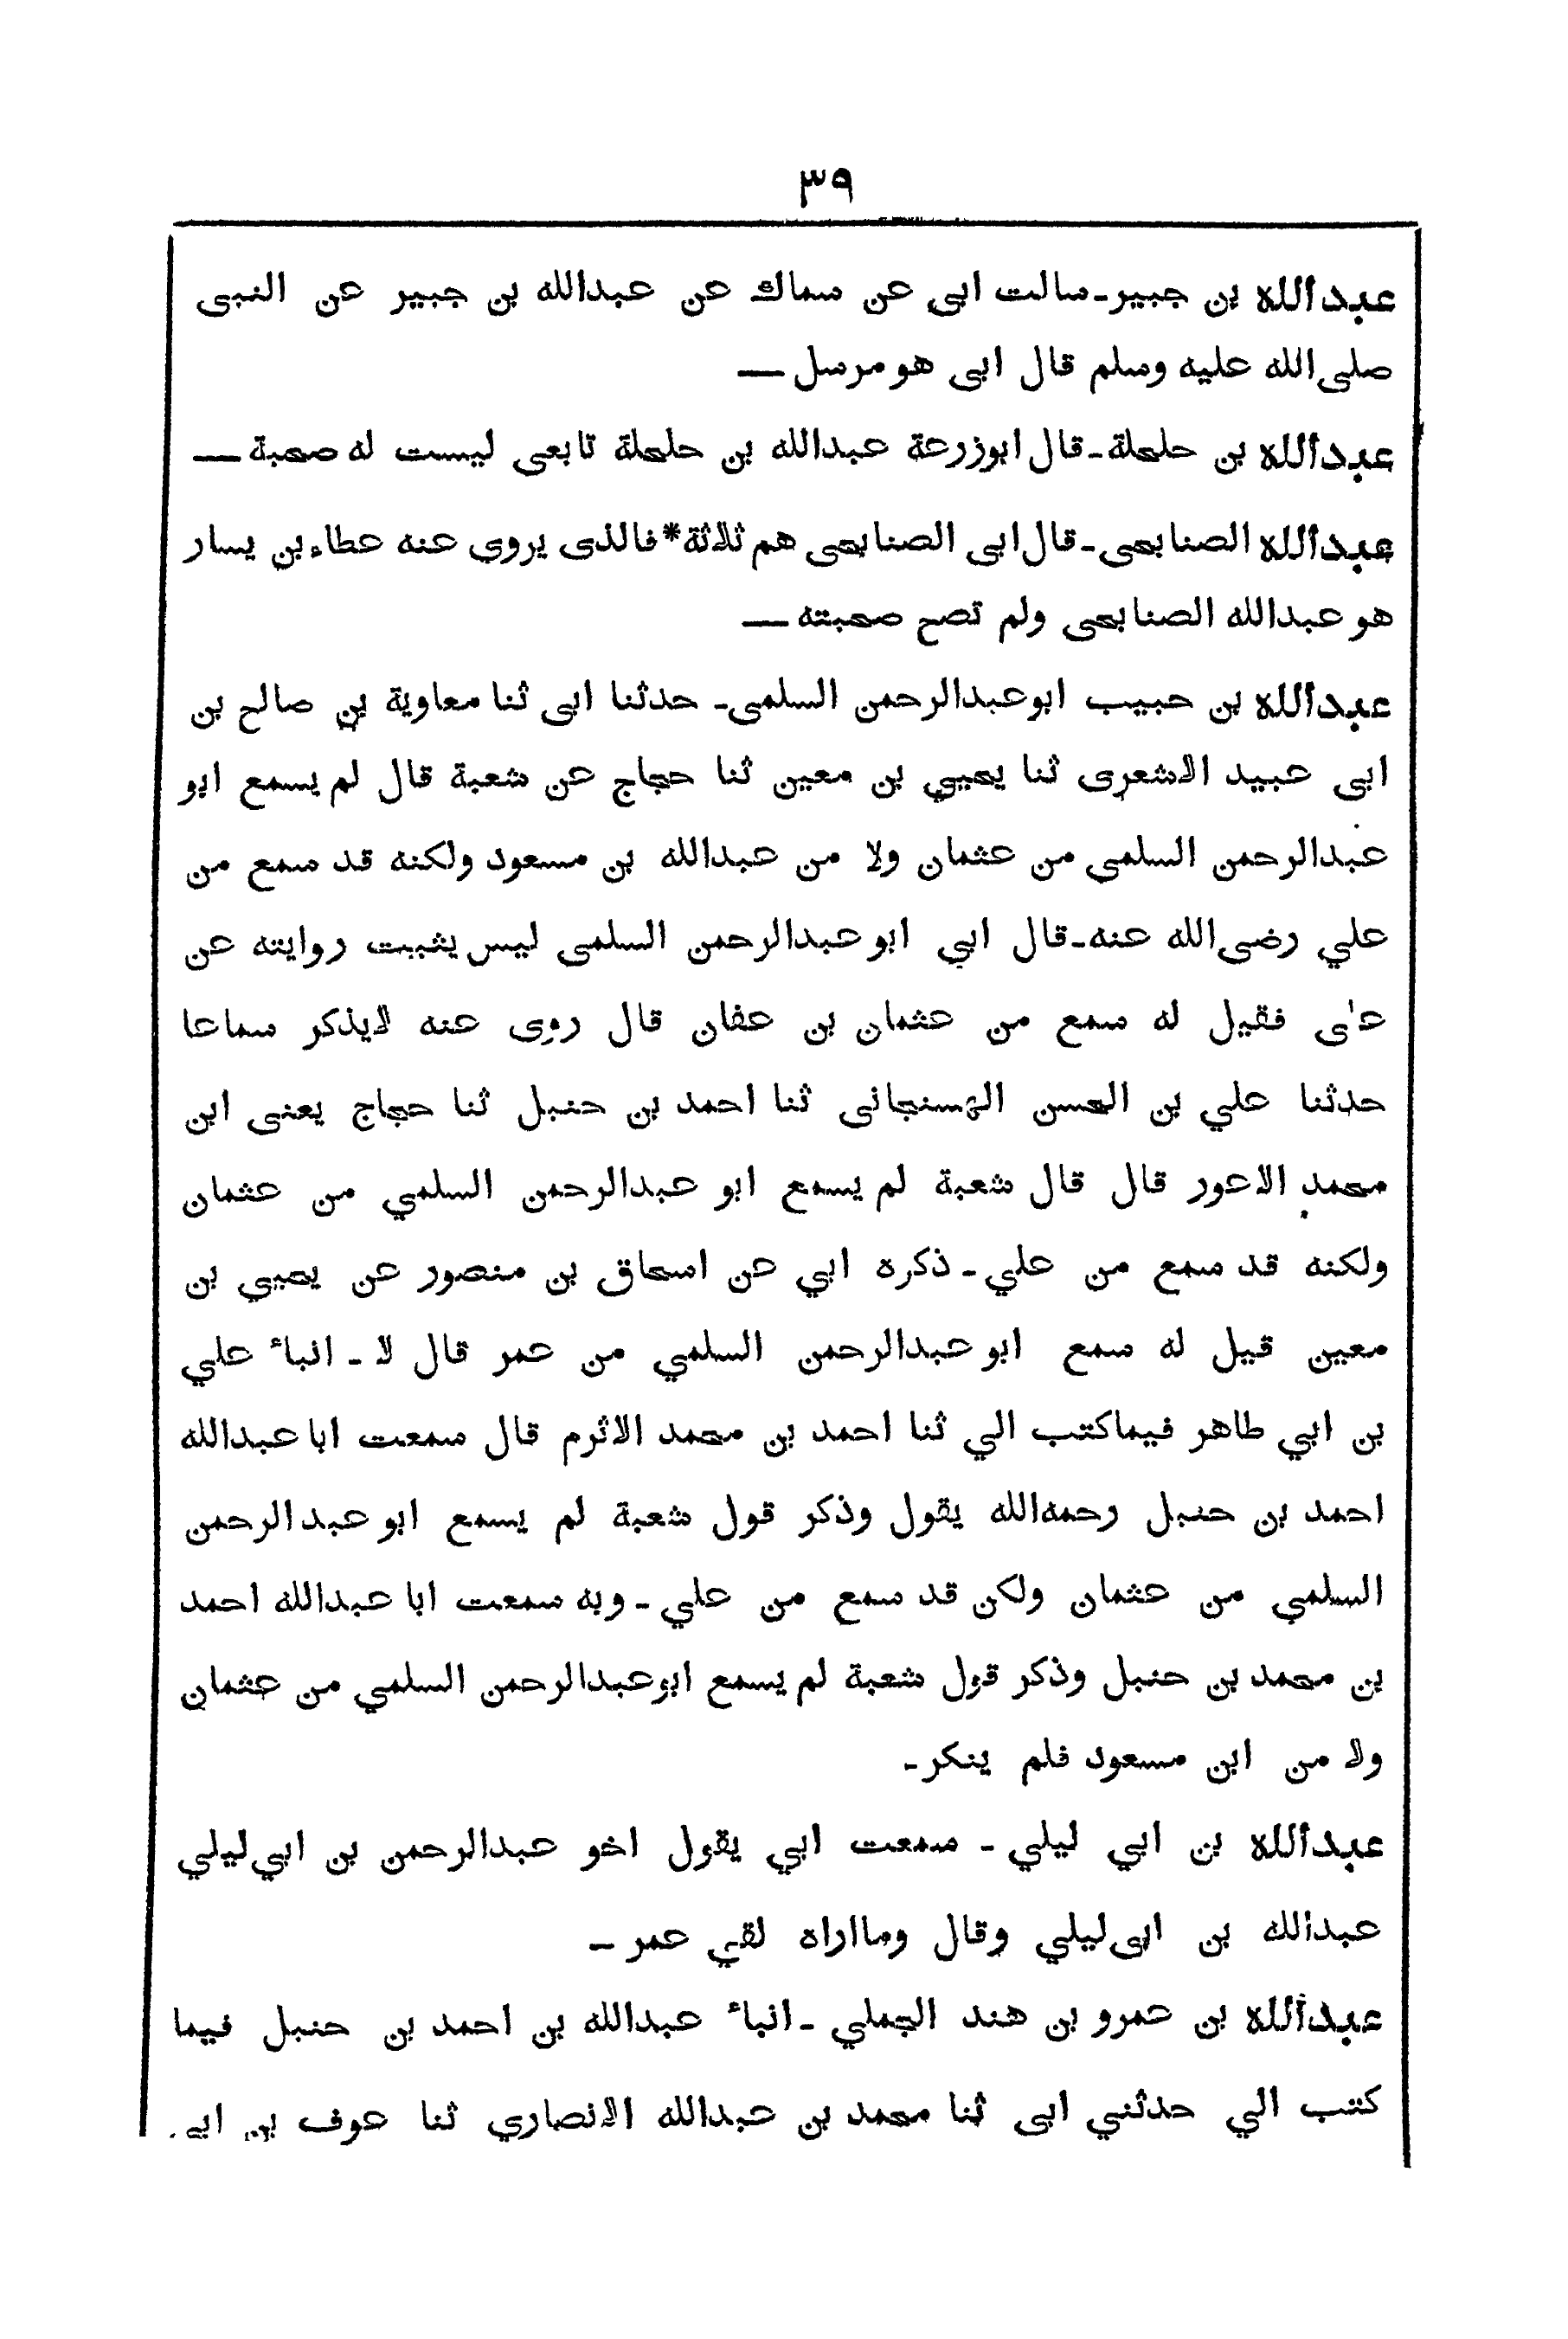 ٣٩
عبدالله بن جبير ـ سالت ابى عن سماك عن عبدالله بن جبير عن النبى
صلى الله عليه وسلم قال ابى هو مرسل ــ
عبدالله بن حلحلة ـ قال ابوزرعة عبدالله بن حلحلة تابعى ليست له صحبة ــ
عبدالله الصنابحى ـ قال ابى الصنابحى هم ثلاثة * فالذى يروى عنه عطاء بن يسار
هو عبدالله الصنابحى ولم تصح صحبته ــ
عبدالله بن حبيب ابوعبدالرحمن السلمى ـ حدثنا ابى ثنا معاوية بن صالح بن
ابى عبيد الاشعرى ثنا يحيي بن معين ثنا حجاج عن شعبة قال لم يسمع ابو
عبدالرحمن السلمي من عثمان ولا من عبدالله بن مسعود ولكنه قد سمع من
علي رضى الله عنه ـ قال ابي ابو عبدالرحمن السلمى ليس يثبت روايته عن
على فقيل له سمع من عثمان بن عفان قال روى عنه لايذكر سماعا
حدثنا علي بن الحسن الهسنجانى ثنا احمد بن حنبل ثنا حجاج يعنى ابن
محمد الاعور قال قال شعبة لم يسمع ابو عبدالرحمن السلمي من عثمان
ولكنه قد سمع من علي ـ ذكره ابي عن اسحاق بن منصور عن يحيي بن
معين قيل له سمع ابو عبدالرحمن السلمي من عمر قال لا ـ انباء علي
بن ابي طاهر فيما كتب الي ثنا احمد بن محمد الاثرم قال سمعت ابا عبدالله
احمد بن حنبل رحمه الله يقول وذكر قول شعبة لم يسمع ابو عبد الرحمن
السلمي من عثمان ولكن قد سمع من علي ـ وبه سمعت ابا عبدالله احمد
بن محمد بن حنبل وذكر قول شعبة لم يسمع ابوعبدالرحمن السلمي من عثمان
ولا من ابن مسعود فلم ينكر ـ
عبدالله بن ابي ليلي ـ سمعت ابي يقول اخو عبدالرحمن بن ابي ليلي
عبدالله بن ابى ليلي وقال وما اراه لقي عمر ــ
عبدالله بن عمرو بن هند الجملي ـ انباء عبدالله بن احمد بن حنبل فيما
كتب الي حدثني ابى ثنا محمد بن عبدالله الانصاري ثنا عوف بن ابى